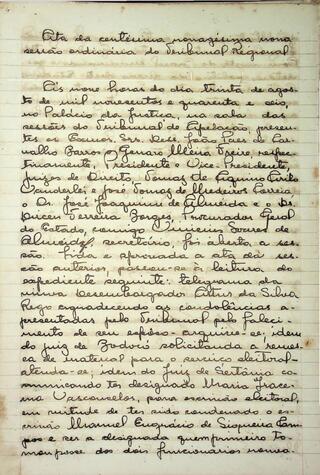 Ata da centésima nonagésima nona
sessão ordinária do Tribunal Regional
Às nove horas do dia trinta de agos-
to de mil novecentos e quarenta e seis,
no Palácio da Justiça, na sala das
sessões do Tribunal de Apelação, presen-
tes os Exmos. Srs. Des. Luiz Paes de Car-
valho Barros e Genaro Freire, respec-
tivamente, Presidente e Vice-Presidente,
Juizes de Direito, Tomaz de Aquino Cirilo
Wanderlei e José Tomaz de Medeiros Correia
o Dr. José Joaquim de Almeida e o Dr.
Dirceu Ferreira Borges, Procurador Geral
do Estado, comigo Vinicius Soares de
Almeida, secretário, foi aberta a ses-
são. Lida e aprovada a ata da ses-
são anterior, passou-se à leitura do
expediente seguinte: telegrama da
viuva Desembargador da Silva
Rego agradecendo as condolências a-
presentadas pelo Tribunal pelo faleci-
mento de seu esposo - arquive-se; idem
do juiz de solicitando a remes-
sa de material para o serviço eleitoral-
atenda-se; idem do Juiz de Sertânia co-
municando ter designado Maria Irace-
ma Vasconcelos, para escrivão eleitoral,
em virtude de ter sido condenado o es-
crivão Manuel de Siqueira Cam-
pos e ser a designada quem primeiro to-
mou posse dos dois funcionários novos.